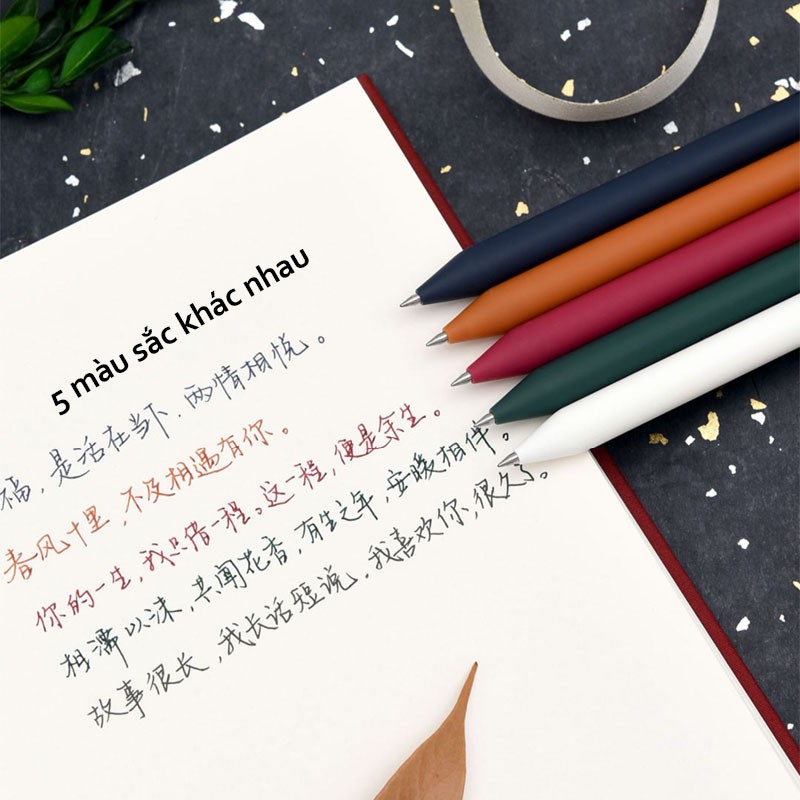 5 màu sắc khác nhau
福，是活在当下，两情相悦。
春风十里，不及相遇有你。
你的一生，我只借一程。这一程，便是余生。
相濡以沫，共闻花香，有生之年，安暖相伴。
故事很长，我长话短说，我喜欢你，很久了。